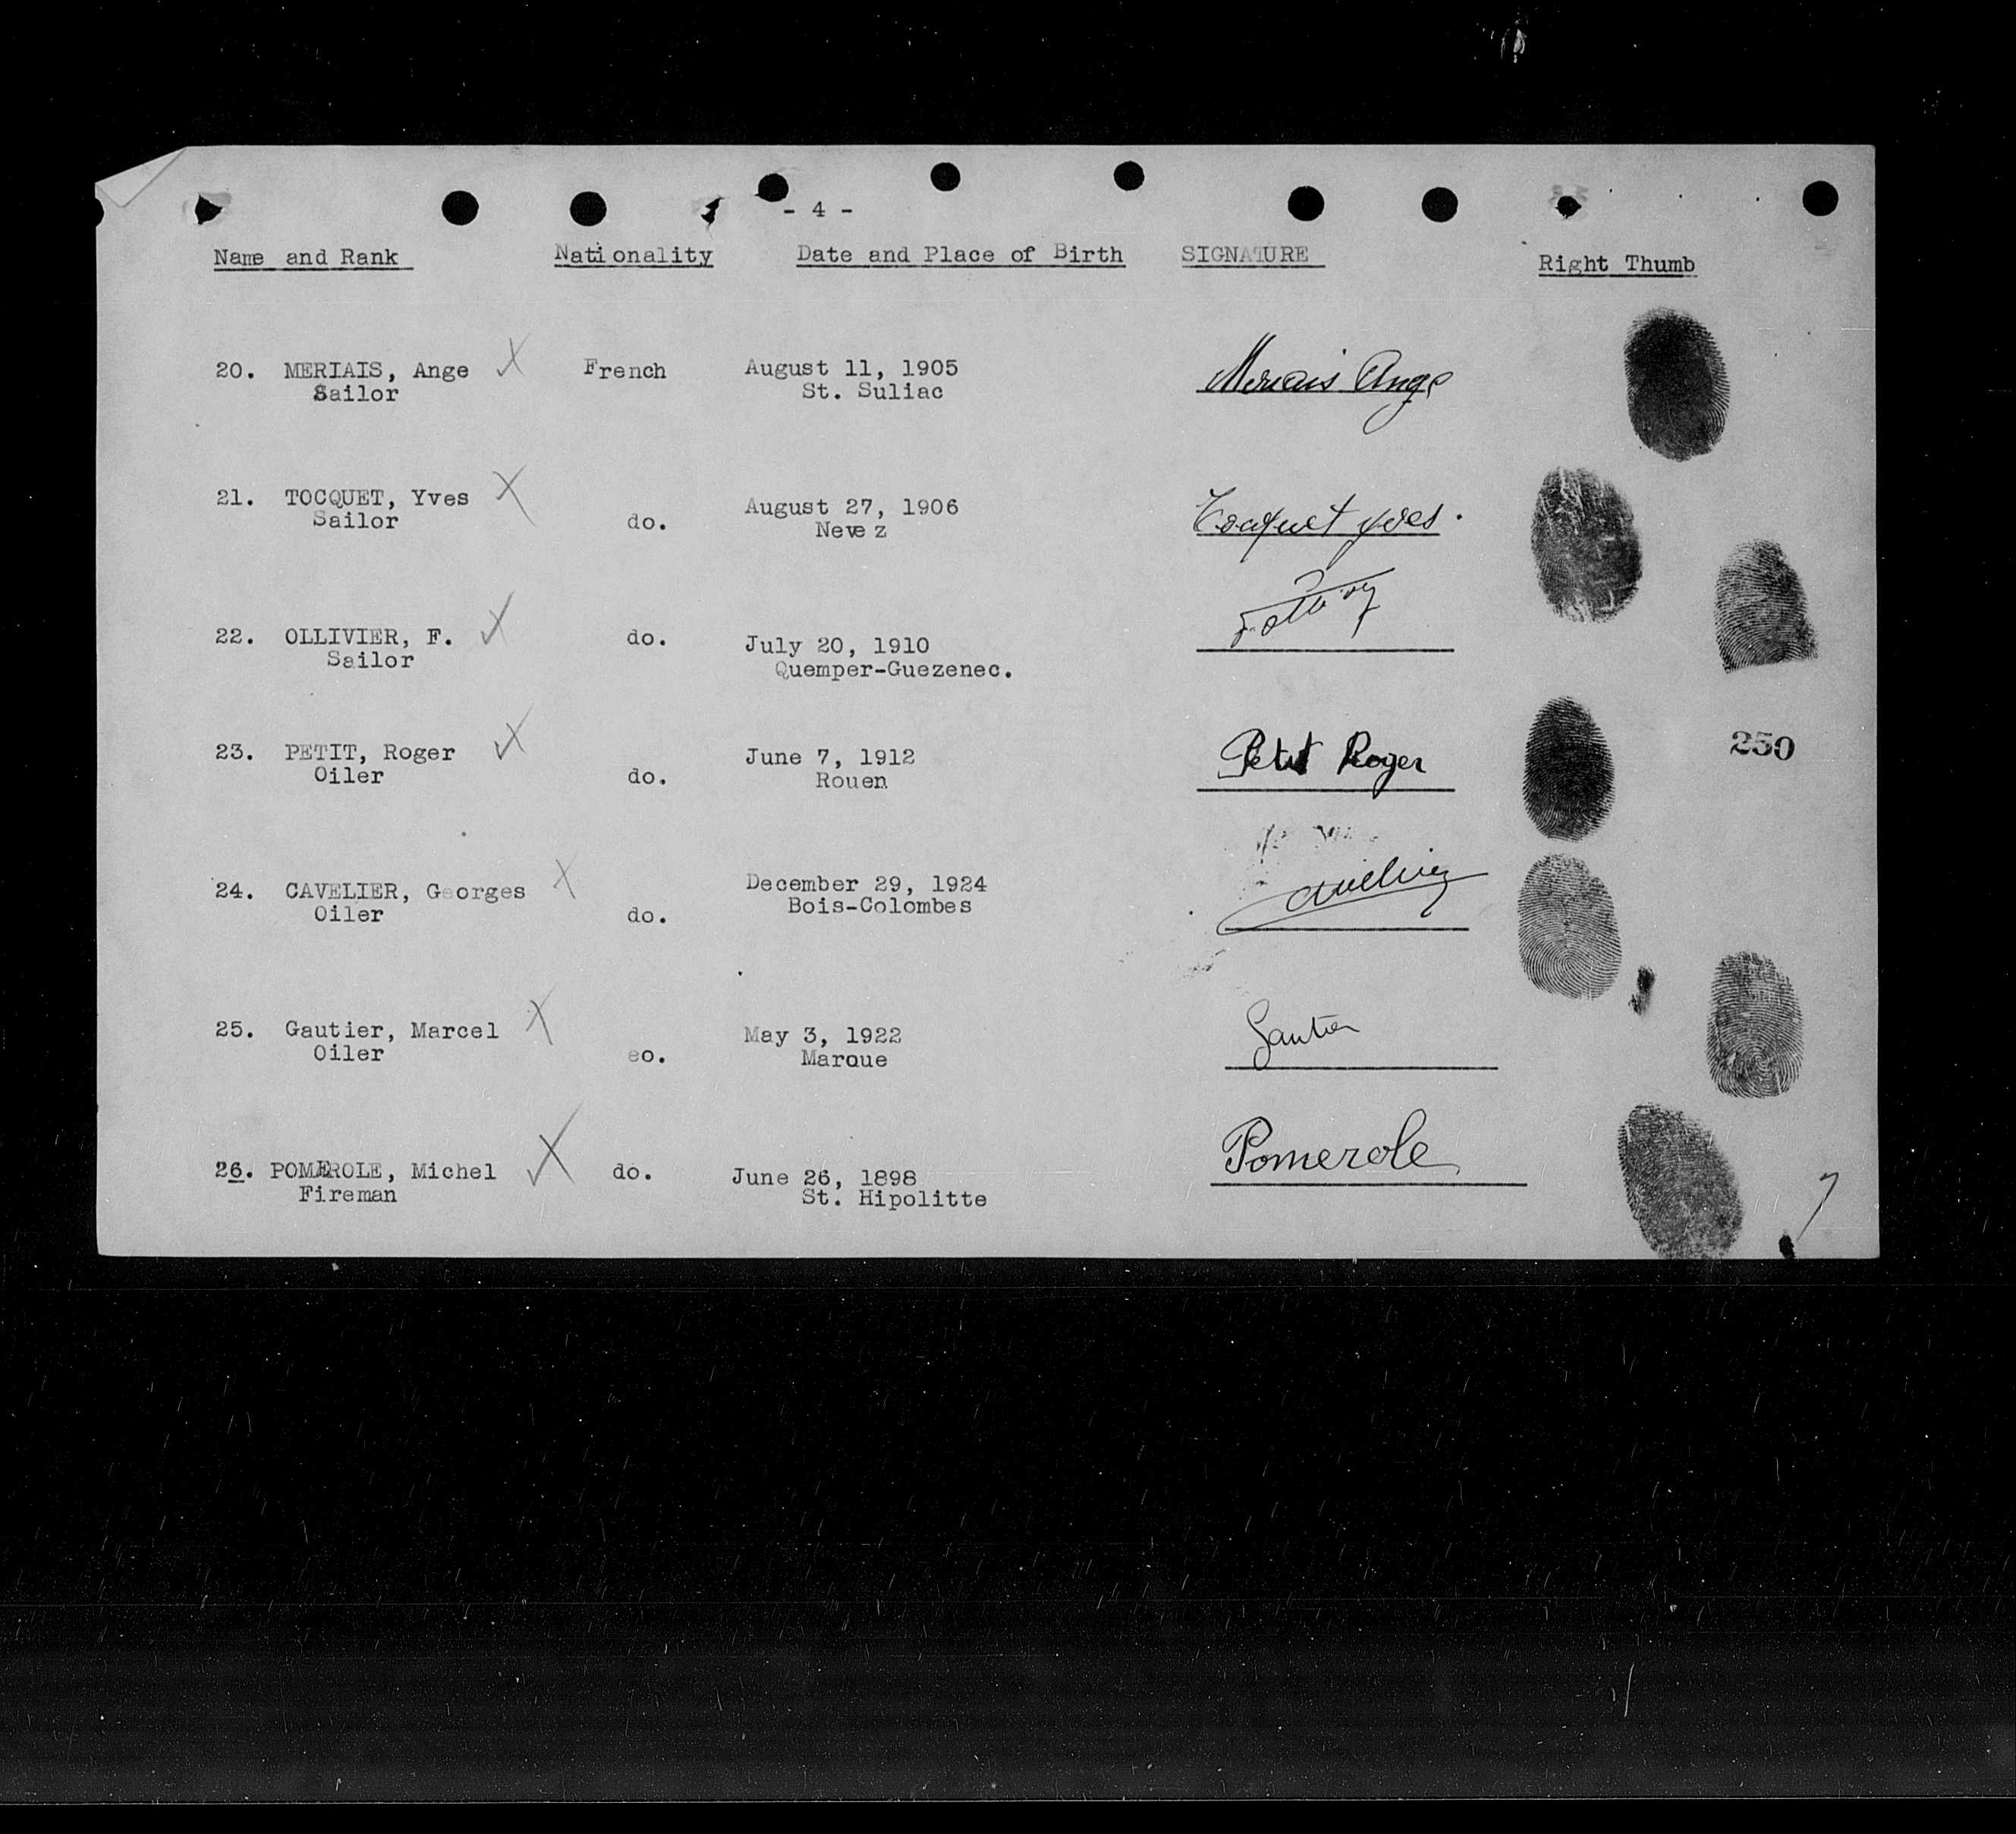 - 4 -
Name and Rank Nationality Date and Place of Birth SIGNATURE Right Thumb
20. MERIAIS, Ange French August 11, 1905 Meriais Ange
Sailor St. Suliac
21. TOCQUET, Yves August 27, 1906 Tocquet yves.
Sailor do. Neve z
22. OLLIVIER, F. do. July 20, 1910
Sailor Quemper-Guezenec.
23. PETIT, Roger June 7, 1912 Petit Roger 250
Oiler do. Rouen
24. CAVELIER, Georges December 29, 1924 Cavelier
Oiler do. Bois-Colombes
25. Gautier, Marcel May 3, 1922 Gautier
Oiler eo. Maroue
26. POMEROLE, Michel do. June 26, 1898 Pomerole
Fireman St. Hipolitte